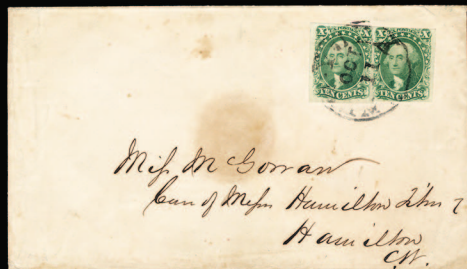 X X X X
TEN CENTS TEN CENTS
OCT
11
Miss McGowan
Care of Messrs Hamilton
Hamilton
C.W.